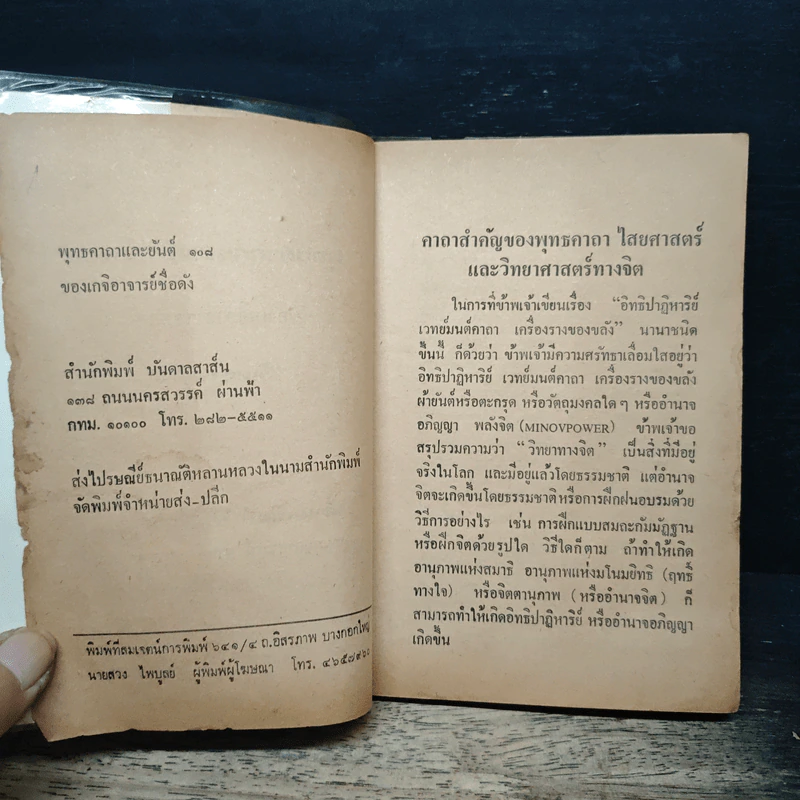 พุทธคาถาและยันต์ ๑๐๘
ของเกจิอาจารย์ชื่อดัง
สำนักพิมพ์ บันดาลสาส์น
๑๓๘ ถนนนครสวรรค์ ผ่านฟ้า
กทม. ๑๐๑๐๐ โทร. ๒๘๒-๕๕๑๑
ส่งไปรษณีย์ธนาณัติหลานหลวงในนามสำนักพิมพ์
จัดพิมพ์จำหน่ายส่ง-ปลีก
พิมพ์ที่สมเจตน์การพิมพ์ ๖๔๑/๔ ถ.อิสรภาพ บางกอกใหญ่
นายสวง ไพบูลย์ ผู้พิมพ์ผู้โฆษณา โทร.
คาถาสำคัญของพุทธคาถา ไสยศาสตร์
และวิทยาศาสตร์ทางจิต
ในการที่ข้าพเจ้าเขียนเรื่อง “อิทธิปาฏิหาริย์
เวทย์มนต์คาถา เครื่องรางของขลัง” นานาชนิด
ขึ้นนี้ ก็ด้วยว่า ข้าพเจ้ามีความศรัทธาเลื่อมใสอยู่ว่า
อิทธิปาฏิหาริย์ เวทย์มนต์คาถา เครื่องรางของขลัง
ผ้ายันต์หรือตะกรุด หรือวัตถุมงคลใด ๆ หรืออำนาจ
อภิญญา พลังจิต (MINOVPOWER) ข้าพเจ้าขอ
สรุปรวมความว่า “วิทยาทางจิต” เป็นสิ่งที่มีอยู่
จริงในโลก และมีอยู่แล้วโดยธรรมชาติ แต่อำนาจ
จิตจะเกิดขึ้นโดยธรรมชาติหรือการฝึกฝนอบรมด้วย
วิธีการอย่างไร เช่น การฝึกแบบสมถะกัมมัฏฐาน
หรือฝึกจิตด้วยรูปใด วิธีใดก็ตาม ถ้าทำให้เกิด
อานุภาพแห่งสมาธิ อานุภาพแห่งมโนมยิทธิ (ฤทธิ์
ทางใจ) หรือจิตตานุภาพ (หรืออำนาจจิต) ก็
สามารถทำให้เกิดอิทธิปาฏิหาริย์ หรืออำนาจอภิญญา
เกิดขึ้น